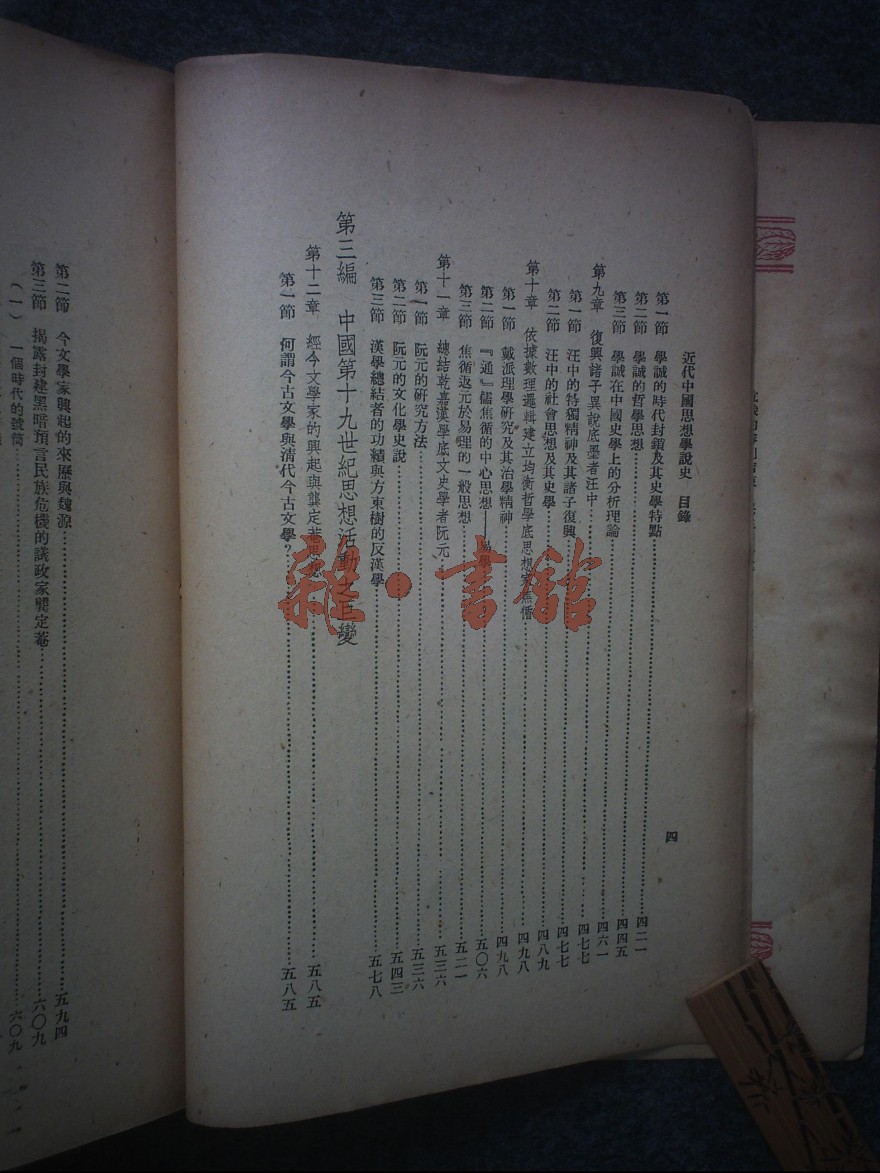 近代中國思想學說史 目錄
四
第一節 學誠的時代封鎖及其史學特點……四二一
第二節 學誠的哲學思想……四四五
第三節 學誠在中國史學上的分析理論……四六一
第九章 復興諸子異說底墨者汪中……四七七
第一節 汪中的特獨精神及其諸子復興……四七七
第二節 汪中的社會思想及其史學……四八九
第十章 依據數理邏輯建立均衡哲學底思想家焦循……四九八
第一節 戴派理學研究及其治學精神……四九八
第二節 『通』儒焦循的中心思想——易學……五〇六
第三節 焦循返元於易理的一般思想……五二一
第十一章 總結乾嘉漢學底文史學者阮元……五三六
第一節 阮元的研究方法……五三六
第二節 阮元的文化學史說……五四三
第三節 漢學總結者的功績與方東樹的反漢學……五七八
第三編 中國第十九世紀思想活動之巨變
第十二章 經今文學家的興起與龔定菴思想……五八五
第一節 何謂今古文學與清代今古文學?……五八五
第二節 今文學家興起的來歷與魏源……五九四
第三節 揭露封建黑暗預言民族危機的議政家龔定菴……六〇九
(一) 一個時代的號筒……六〇九
雜·書館